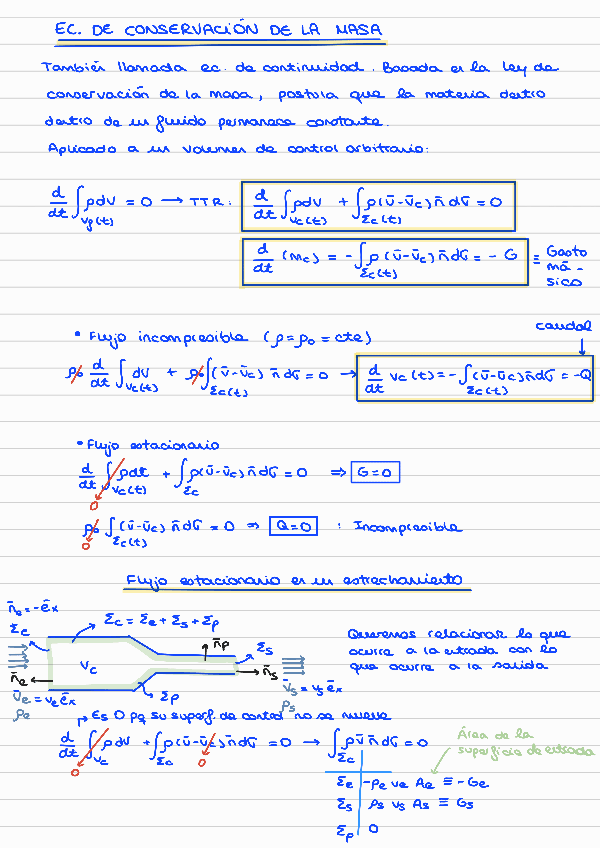 EC. DE CONSERVACIÓN DE LA MASA
También llamada ec. de continuidad. Basada en la ley de
conservación de la masa, postula que la materia dentro
dentro de un fluido permanece constante.
Aplicado a un volumen de control arbitrario:
d/dt ∫_{Vf(t)} ρdV = 0 → TTR: d/dt ∫_{Vc(t)} ρdV + ∫_{Σc(t)} ρ(v̄-v̄c) n̄ dσ = 0
d/dt (mc) = - ∫_{Σc(t)} ρ(v̄-v̄c) n̄ dσ = - G ≡ Gasto
má-
sico
• Flujo incompresible (ρ=ρ₀=cte)
caudal
ρ₀ d/dt ∫_{Vc(t)} dV + ρ₀ ∫_{Σc(t)} (v̄-v̄c) n̄ dσ = 0 → d/dt Vc(t) = - ∫_{Σc(t)} (v̄-v̄c) n̄ dσ = -Q
• Flujo estacionario
d/dt ∫_{Vc(t)} ρdt + ∫_{Σc} ρ(v̄-v̄c) n̄ dσ = 0 ⇒ G=0
0
ρ₀ ∫_{Σc(t)} (v̄-v̄c) n̄ dσ = 0 ⇒ Q=0 : Incompresible
0
Flujo estacionario en un estrechamiento
n̄e = -ēx
Σc
Σc = Σe + Σs + Σp
n̄p
Σs
Vc
n̄e
n̄s
v̄e = ve ēx
ρe
Σp
v̄s = vs ēx
ρs
Queremos relacionar lo que
ocurre a la entrada con lo
que ocurre a la salida
→ Es 0 pq su superf. de control no se mueve
d/dt ∫_{Vc} ρdV + ∫_{Σc} ρ(v̄-v̄c) n̄ dσ = 0 → ∫_{Σc} ρ v̄ n̄ dσ = 0
0 0
Área de la
superficie de entrada
Σe -ρe ve Ae ≡ -Ge
Σs ρs vs As ≡ Gs
Σp 0